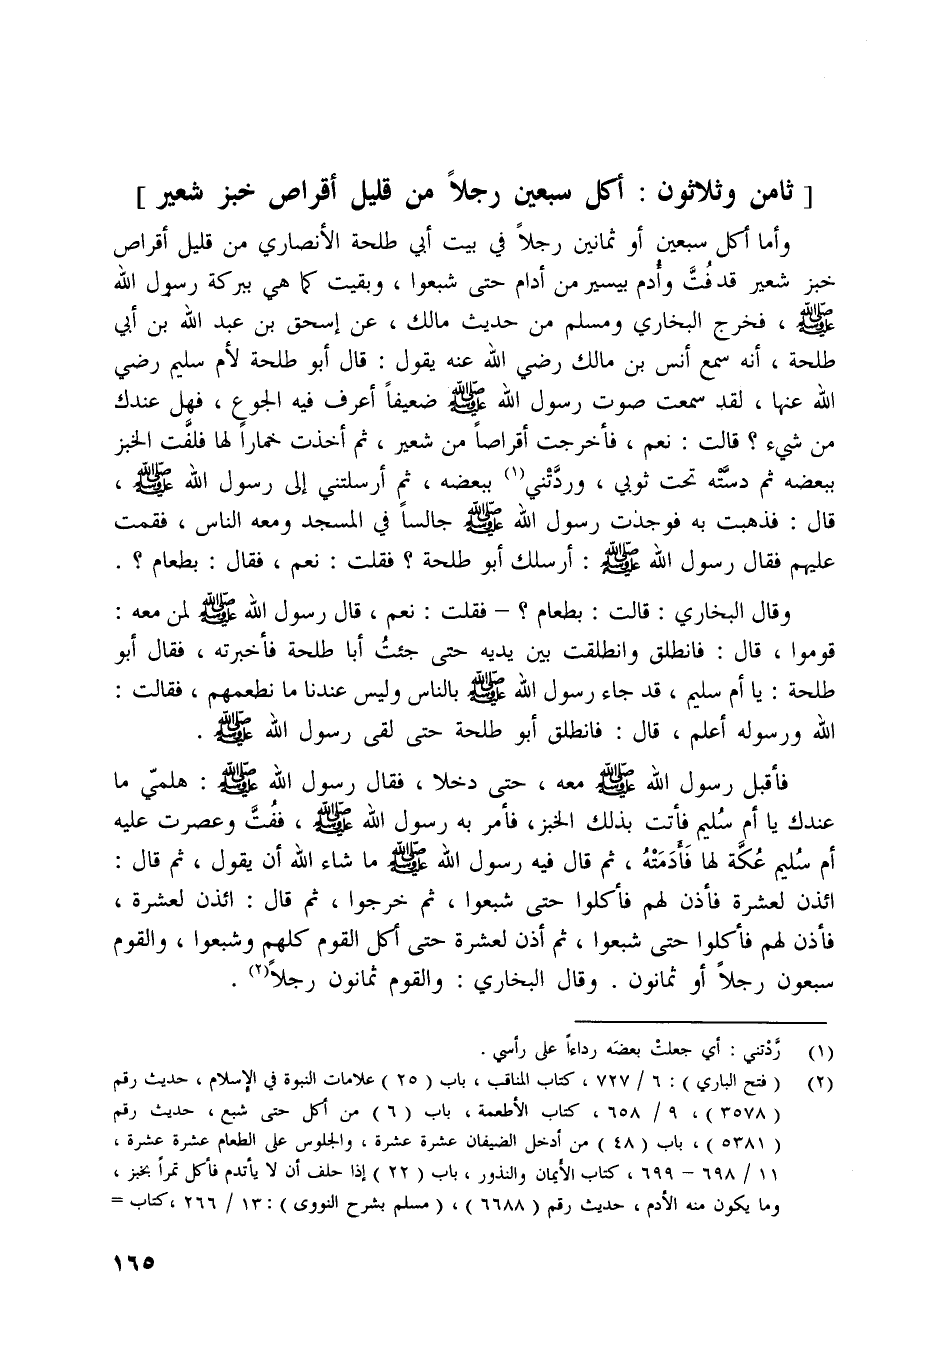 [ ثامن وثلاثون : أكل سبعين رجلاً من قليل أقراص خبز شعير ]
وأما أكل سبعين أو ثمانين رجلاً في بيت أبي طلحة الأنصاري من قليل أقراص
خبز شعير قد فُتَّ وأُدم بيسير من أدام حتى شبعوا ، وبقيت كما هي ببركة رسول الله
ﷺ ، فخرج البخاري ومسلم من حديث مالك ، عن إسحق بن عبد الله بن أبي
طلحة ، أنه سمع أنس بن مالك رضي الله عنه يقول : قال أبو طلحة لأم سليم رضي
الله عنها ، لقد سمعت صوت رسول الله ﷺ ضعيفاً أعرف فيه الجوع ، فهل عندك
من شيء ؟ قالت : نعم ، فأخرجت أقراصاً من شعير ، ثم أخذت خماراً لها فلفَّت الخبز
ببعضه ثم دسَّته تحت ثوبي ، وردَّتْني(١) ببعضه ، ثم أرسلتني إلى رسول الله ﷺ ،
قال : فذهبت به فوجدت رسول الله ﷺ جالساً في المسجد ومعه الناس ، فقمت
عليهم فقال رسول الله ﷺ : أرسلك أبو طلحة ؟ فقلت : نعم ، فقال : بطعام ؟ .
وقال البخاري : قالت : بطعام ؟ – فقلت : نعم ، قال رسول الله ﷺ لمن معه :
قوموا ، قال : فانطلق وانطلقت بين يديه حتى جئتُ أبا طلحة فأخبرته ، فقال أبو
طلحة : يا أم سليم ، قد جاء رسول الله ﷺ بالناس وليس عندنا ما نطعمهم ، فقالت :
الله ورسوله أعلم ، قال : فانطلق أبو طلحة حتى لقى رسول الله ﷺ .
فأقبل رسول الله ﷺ معه ، حتى دخلا ، فقال رسول الله ﷺ : هلميّ ما
عندك يا أم سُليم فأتت بذلك الخبز، فأمر به رسول الله ﷺ ، ففُتَّ وعصرت عليه
أم سُليم عُكَّة لها فَأَدَمَتْهُ ، ثم قال فيه رسول الله ﷺ ما شاء الله أن يقول ، ثم قال :
ائذن لعشرة فأذن لهم فأكلوا حتى شبعوا ، ثم خرجوا ، ثم قال : ائذن لعشرة ،
فأذن لهم فأكلوا حتى شبعوا ، ثم أذن لعشرة حتى أكل القوم كلهم وشبعوا ، والقوم
سبعون رجلاً أو ثمانون . وقال البخاري : والقوم ثمانون رجلاً(٢) .
(١) رَّدْتني : أي جعلتْ بعضَه رداءاً على رأسي .
(٢) ( فتح الباري ) : ٦ / ٧٢٧ ، كتاب المناقب ، باب ( ٢٥ ) علامات النبوة في الإسلام ، حديث رقم
( ٣٥٧٨ ) ، ٩ / ٦٥٨ ، كتاب الأطعمة ، باب ( ٦ ) من أكل حتى شبع ، حديث رقم
( ٥٣٨١ ) ، باب ( ٤٨ ) من أدخل الضيفان عشرة عشرة ، والجلوس على الطعام عشرة عشرة ،
١١ / ٦٩٨ – ٦٩٩ ، كتاب الأيمان والنذور ، باب ( ٢٢ ) إذا حلف أن لا يأتدم فأكل تمراً بخبز ،
وما يكون منه الأدم ، حديث رقم ( ٦٦٨٨ ) ، ( مسلم بشرح النووى ) : ١٣ / ٢٦٦ ، كتاب =
١٦٥